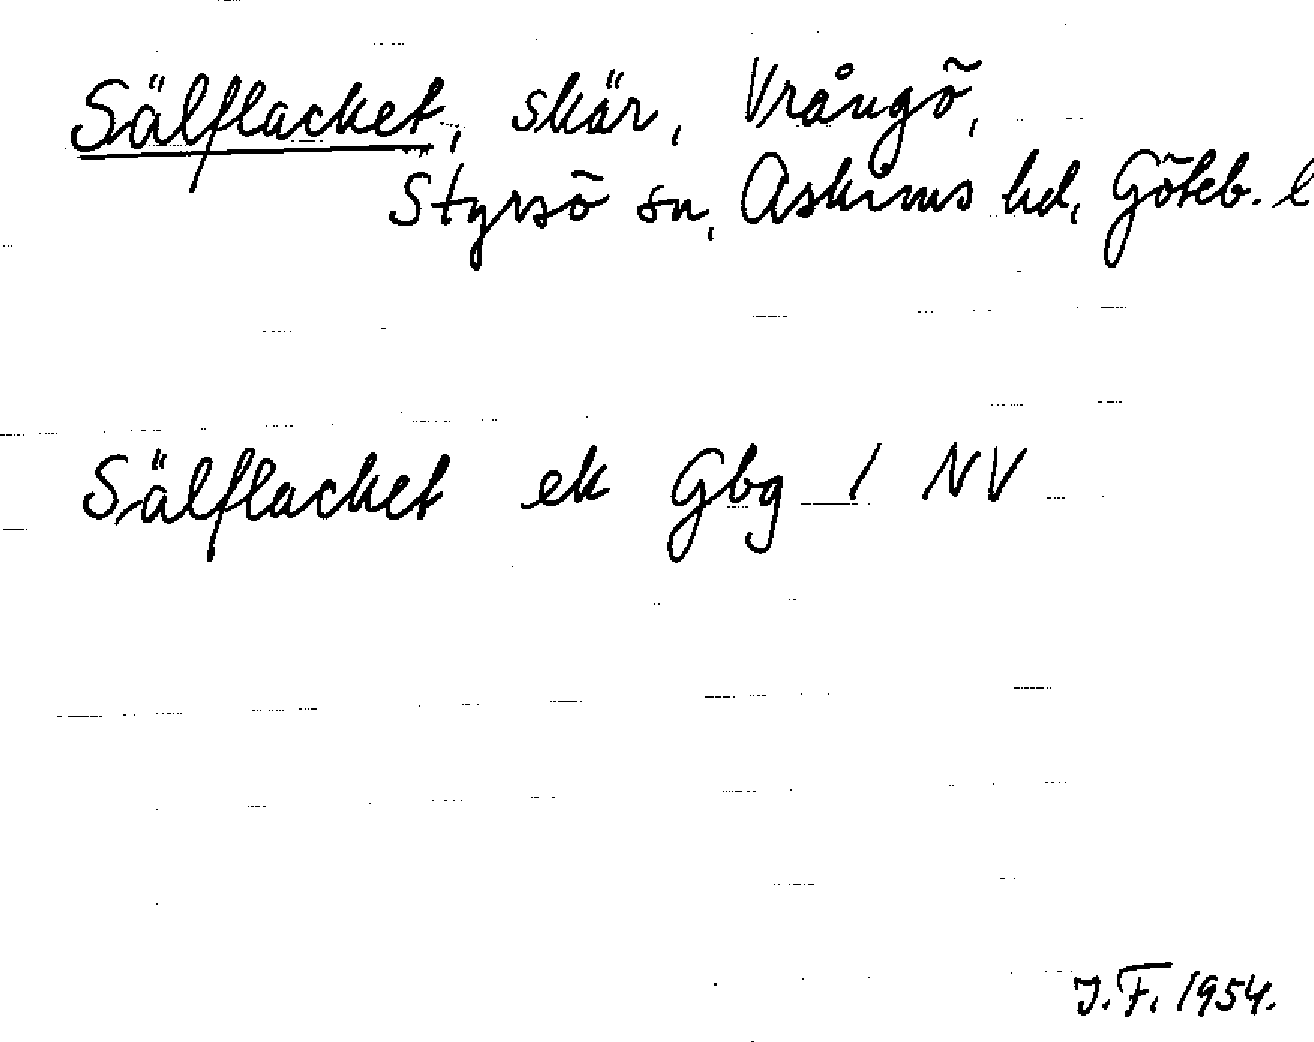 Sälflacket, skär, Vrångö,
Styrsö sn, Askims hd, Göteb. l
Sälflacket ek Gbg 1 NV
J.F. 1954.